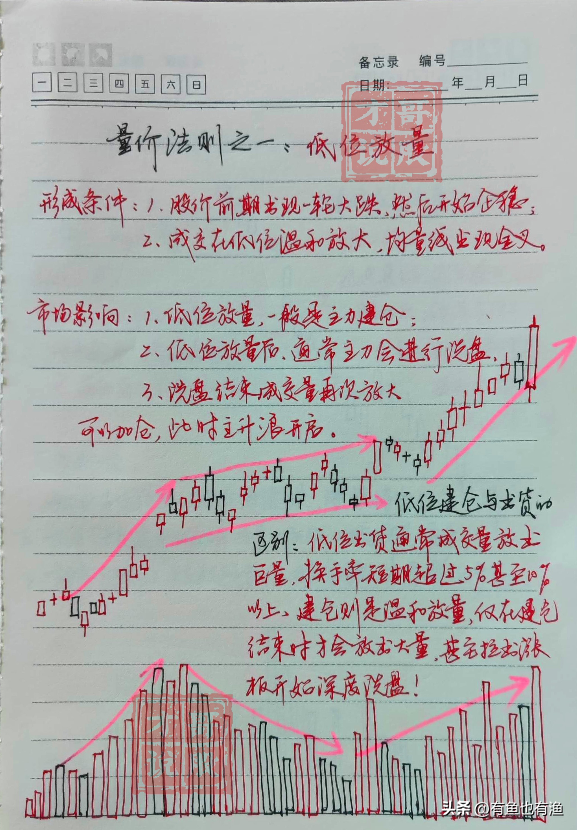 备忘录 编号
一 二 三 四 五 六 日
日期: 年 月 日
量价法则之一:低位放量
形成条件:1、股价前期出现一轮大跌,然后开始企稳;
2、成交在低位温和放大,均量线出现金叉。
市场影响:1、低位放量,一般是主力建仓;
2、低位放量后,通常主力会进行洗盘,
3、洗盘结束成交量再次放大
可以加仓,此时主升浪开启。
低位建仓与出货的
区别:低位出货通常成交量放出
巨量,换手率短期超过5%甚至10%
以上,建仓则是温和放量,仅在建仓
结束时才会放出大量,甚至拉出涨
板开始深度洗盘!
头条 @有鱼也有渔